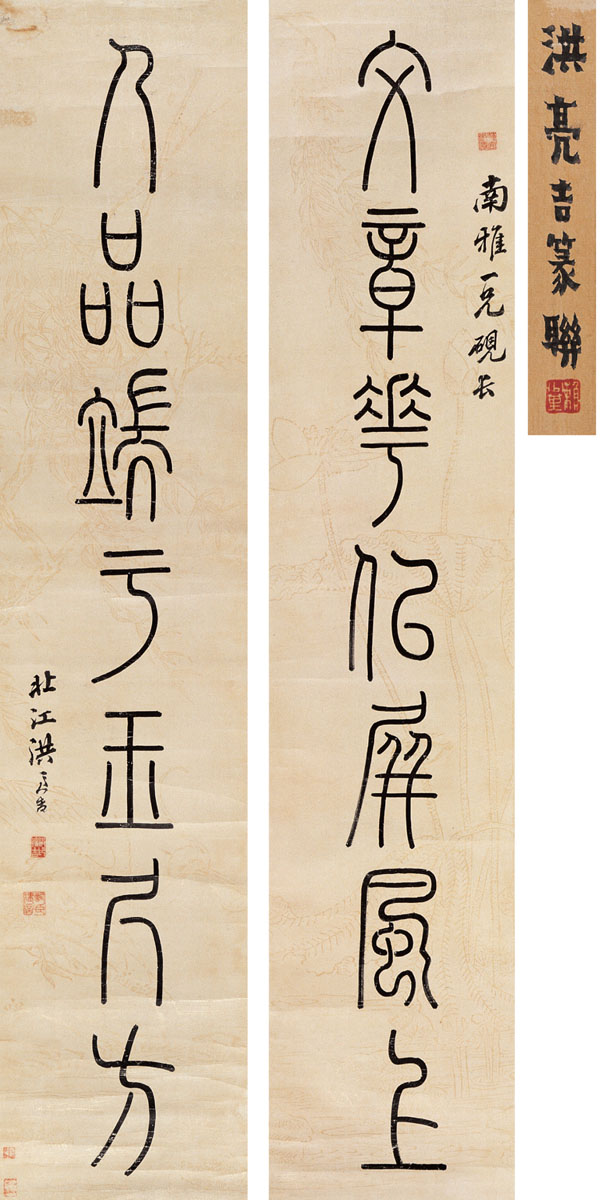 洪亮吉篆聯
南雅一兄硯長
文章華似屏風上
人品端于玉尺方
北江洪亮吉